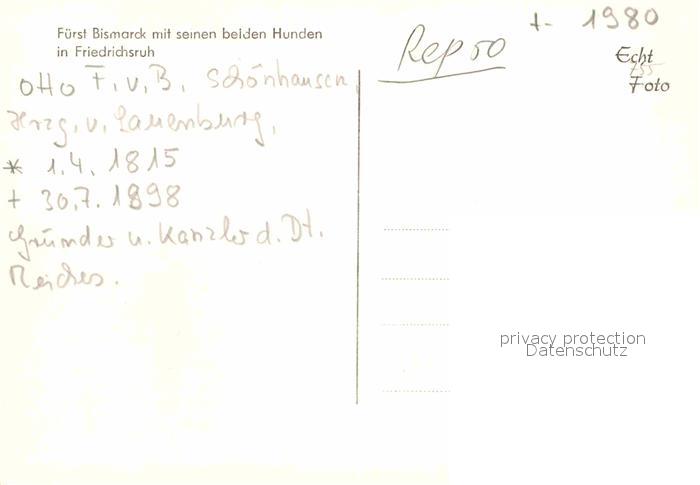 Fürst Bismarck mit seinen beiden Hunden
in Friedrichsruh
Otto F. v. B. Schönhausen,
Herzg. v. Lauenburg,
* 1.4. 1815
+ 30.7. 1898
Gründer u. Kanzler d. Dt.
Reiches.
+- 1980
Repro
Echt
Foto
privacy protection
Datenschutz